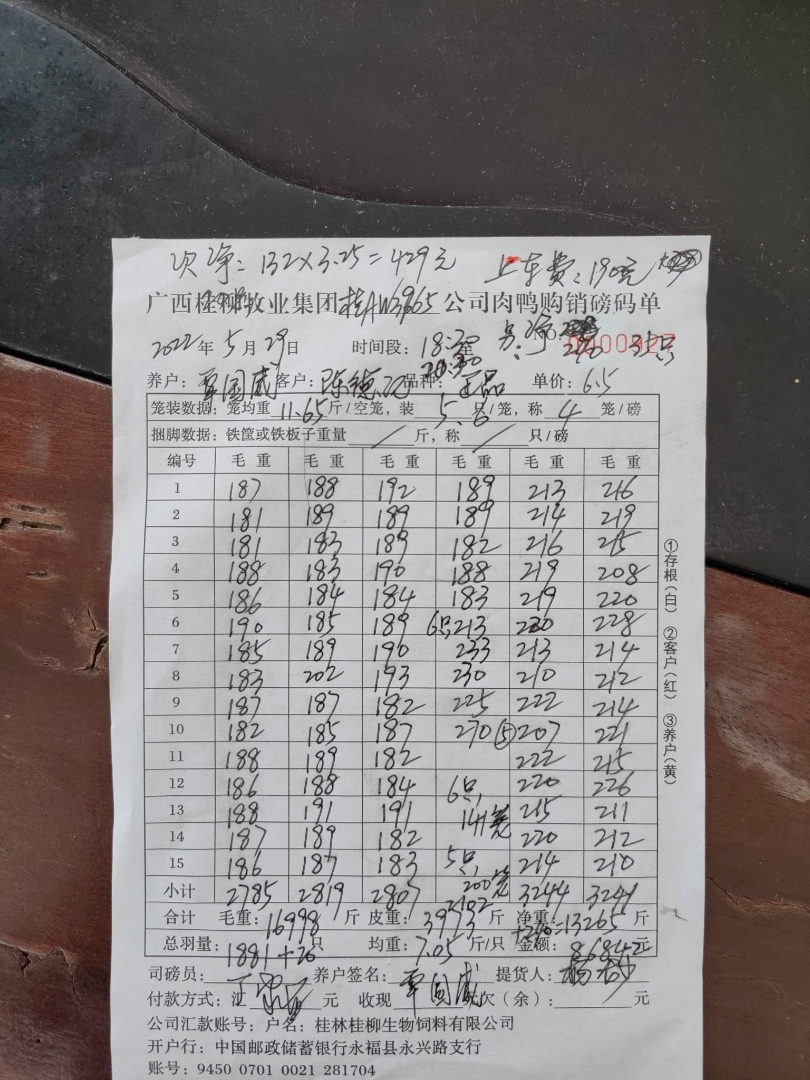 次净:132×3.25=429元
上车费:190元
广西桂柳牧业集团 公司肉鸭购销磅码单
2022年5月29日 时间段:18:30至
养户:覃国威 客户:陈德 品种:正品 单价:6.5
笼装数据:笼均重11.65斤/空笼,装5.6只/笼,称4笼/磅
捆脚数据:铁筐或铁板子重量/斤,称/只/磅
编号 毛重 毛重 毛重 毛重 毛重 毛重
1 187 188 192 189 213 216
2 181 189 189 189 214 219
3 181 183 189 182 216 215
4 188 183 190 188 219 208
5 186 184 184 183 219 220
6 190 185 189 6只213 220 228
7 185 189 190 233 213 214
8 183 202 193 230 210 212
9 187 187 182 225 222 214
10 182 185 187 270⑤ 207 221
11 188 189 182 222 215
12 186 188 184 6只, 220 226
13 188 191 191 141笼 215 211
14 187 189 182 220 212
15 186 187 183 5只, 200笼 214 210
小计 2785 2819 2807 2102 3244 3241
合计 毛重:16998斤 皮重:3973斤 净重:+240=13265斤
总羽量:1881+20只 均重:7.05斤/只 金额:8684元
司磅员: 养户签名:覃国威 提货人:
付款方式:汇 元 收现 欠(余): 元
公司汇款账号:户名:桂林桂柳生物饲料有限公司
开户行:中国邮政储蓄银行永福县永兴路支行
账号:9450 0701 0021 281704
①存根(白) ②客户(红) ③养户(黄)